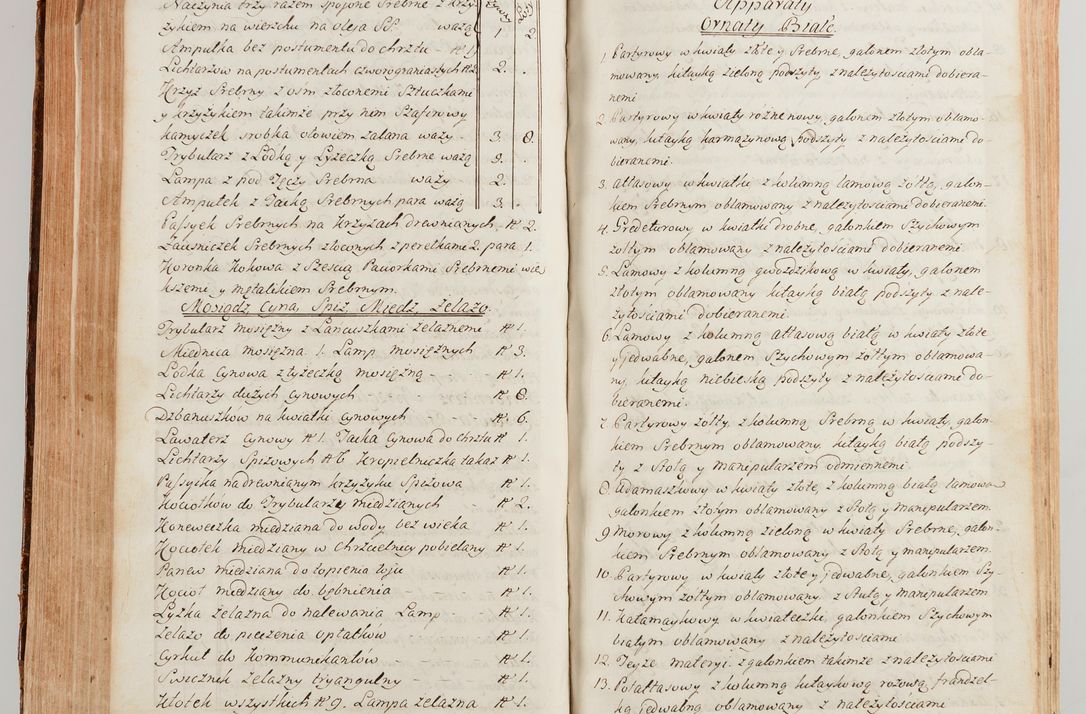 Naczynia trzy razem spojone Srebrne z krzy-
żykiem na wierzchu na oleja SS. ważą 1 2
Ampułka bez postumentu do chrztu - N 1
Lichtarzow na postumentach czworograniastych N 2 2. .
Krzyż Srebrny z osm złoconemi Sztuczkami
y krzyżykiem takimże przy nem Szafirowy
kamyczek srobka ołowiem zalana waży - 3. 8.
Trybularz z Lodką y Łyżeczką Srebrne ważą 9. .
Lampa z pod Tęczy Srebrna waży 2. .
Ampułek z Tacką Srebrnych para ważą 3. .
Pasyek Srebrnych na Krzyżach drewnianych - N 2.
Zausniczek Srebrnych złoconych z perełkami 2. para 1.
Koronka Kokowa z Sześcią Paciorkami Srebrnemi wię-
kszemi y mętalikiem Srebrnym.
Mosiądz, Cyna, Spiż, Miedz, Żelazo.
Trybularz mosiężny z Łancuszkami żelaznemi N 1.
Miednica mosiężna 1. Lamp mosiężnych N 3.
Lodka Cynowa z łyżeczką mosięzną - - N 1.
Lichtarzy dużych cynowych N 8.
Dzbanuszkow na kwiatki cynowych - - N. 6.
Lawaterz Cynowy N 1. Tacka Cynowa do chrztu N 1.
Lichtarzy Spiżowych N 6 Kropielniczka takaż N 1.
Pasyjka na drewnianym krzyżyku Spiżowa N 1.
Kociołkow do Trybularzy miedzianych N 2.
Koneweczka miedziana do wody bez wieka N 1.
Kociołek miedziany w Chrzcielnicy pobielany N 1.
Panew miedziana do topienia łoju - N 1.
Kocioł miedziany do bębnienia - - N 1.
Łyżka żelazna do nalewania Lamp - - N 1.
Żelazo do pieczenia opłatkow - - N 1.
Cyrkuł do Kommunikantow - - N 1.
Swiecznik żelazny tryangulny - N 1.
Kłotek wszystkich N 9. Lampa żelazna N 1.
Apparaty
Ornaty Białe.
1. Partyrowy w kwiaty złote y Srebrne, galonem złotym obla-
mowany kitayką zieloną podszyty z należytościami dobiera-
nemi
2. Partyrowy w kwiaty różne nowy, galonem złotym oblamo-
wany, kitayką karmazynową podszyty z należytościami do-
bieranemi.
3. Attasowy w kwiatki z kolumną lamową żółtą, galon-
kiem Srebrnym oblamowany z należytościami dobieranemi.
4. Gredeturowy w kwiatki drobne, galonkiem Szychowym
żołtym oblamowany z należytościami dobieranemi.
5. Lamowy z kolumną gwoździkową w kwiaty, galonem
złotym oblamowany kitayką białą podszyty z nale-
żytościami dobieranemi.
6. Lamowy z kolumną attasową białą w kwiaty złote
y jedwabne, galonem Szychowym żołtym oblamowa-
ny, kitayką niebieską podszyty z należytościami do-
bieranemi.
7. Partyrowy żołty z kolumną Srebrną w kwiaty, galon-
kiem Srebrnym oblamowany, kitayką białą podszy-
ty z Stołą y manipularzem odmiennemi.
8. Adamaszkowy w kwiaty złote, z kolumną białą lamową
galonkiem złotym oblamowany z Stołą y manipularzem.
9 Morowy z kolumną zieloną w kwiaty Srebrne, galon-
kiem Srebrnym oblamowany z Stołą y manipularzem.
10. Partyrowy w kwiaty złote y jedwabne, galonkiem Szy-
chowym żołtym oblamowany z Stułą y manipularzem
11. Kałamaykowy w kwiateczki, galonkiem Szychowym
białym oblamowany z należytościami
12. Teyże materyi z galonkiem takimże z należytościami
13. Połattasowy z kolumną kitaykową rożową frandzel-
ką jedwabną oblamowany z należytościami